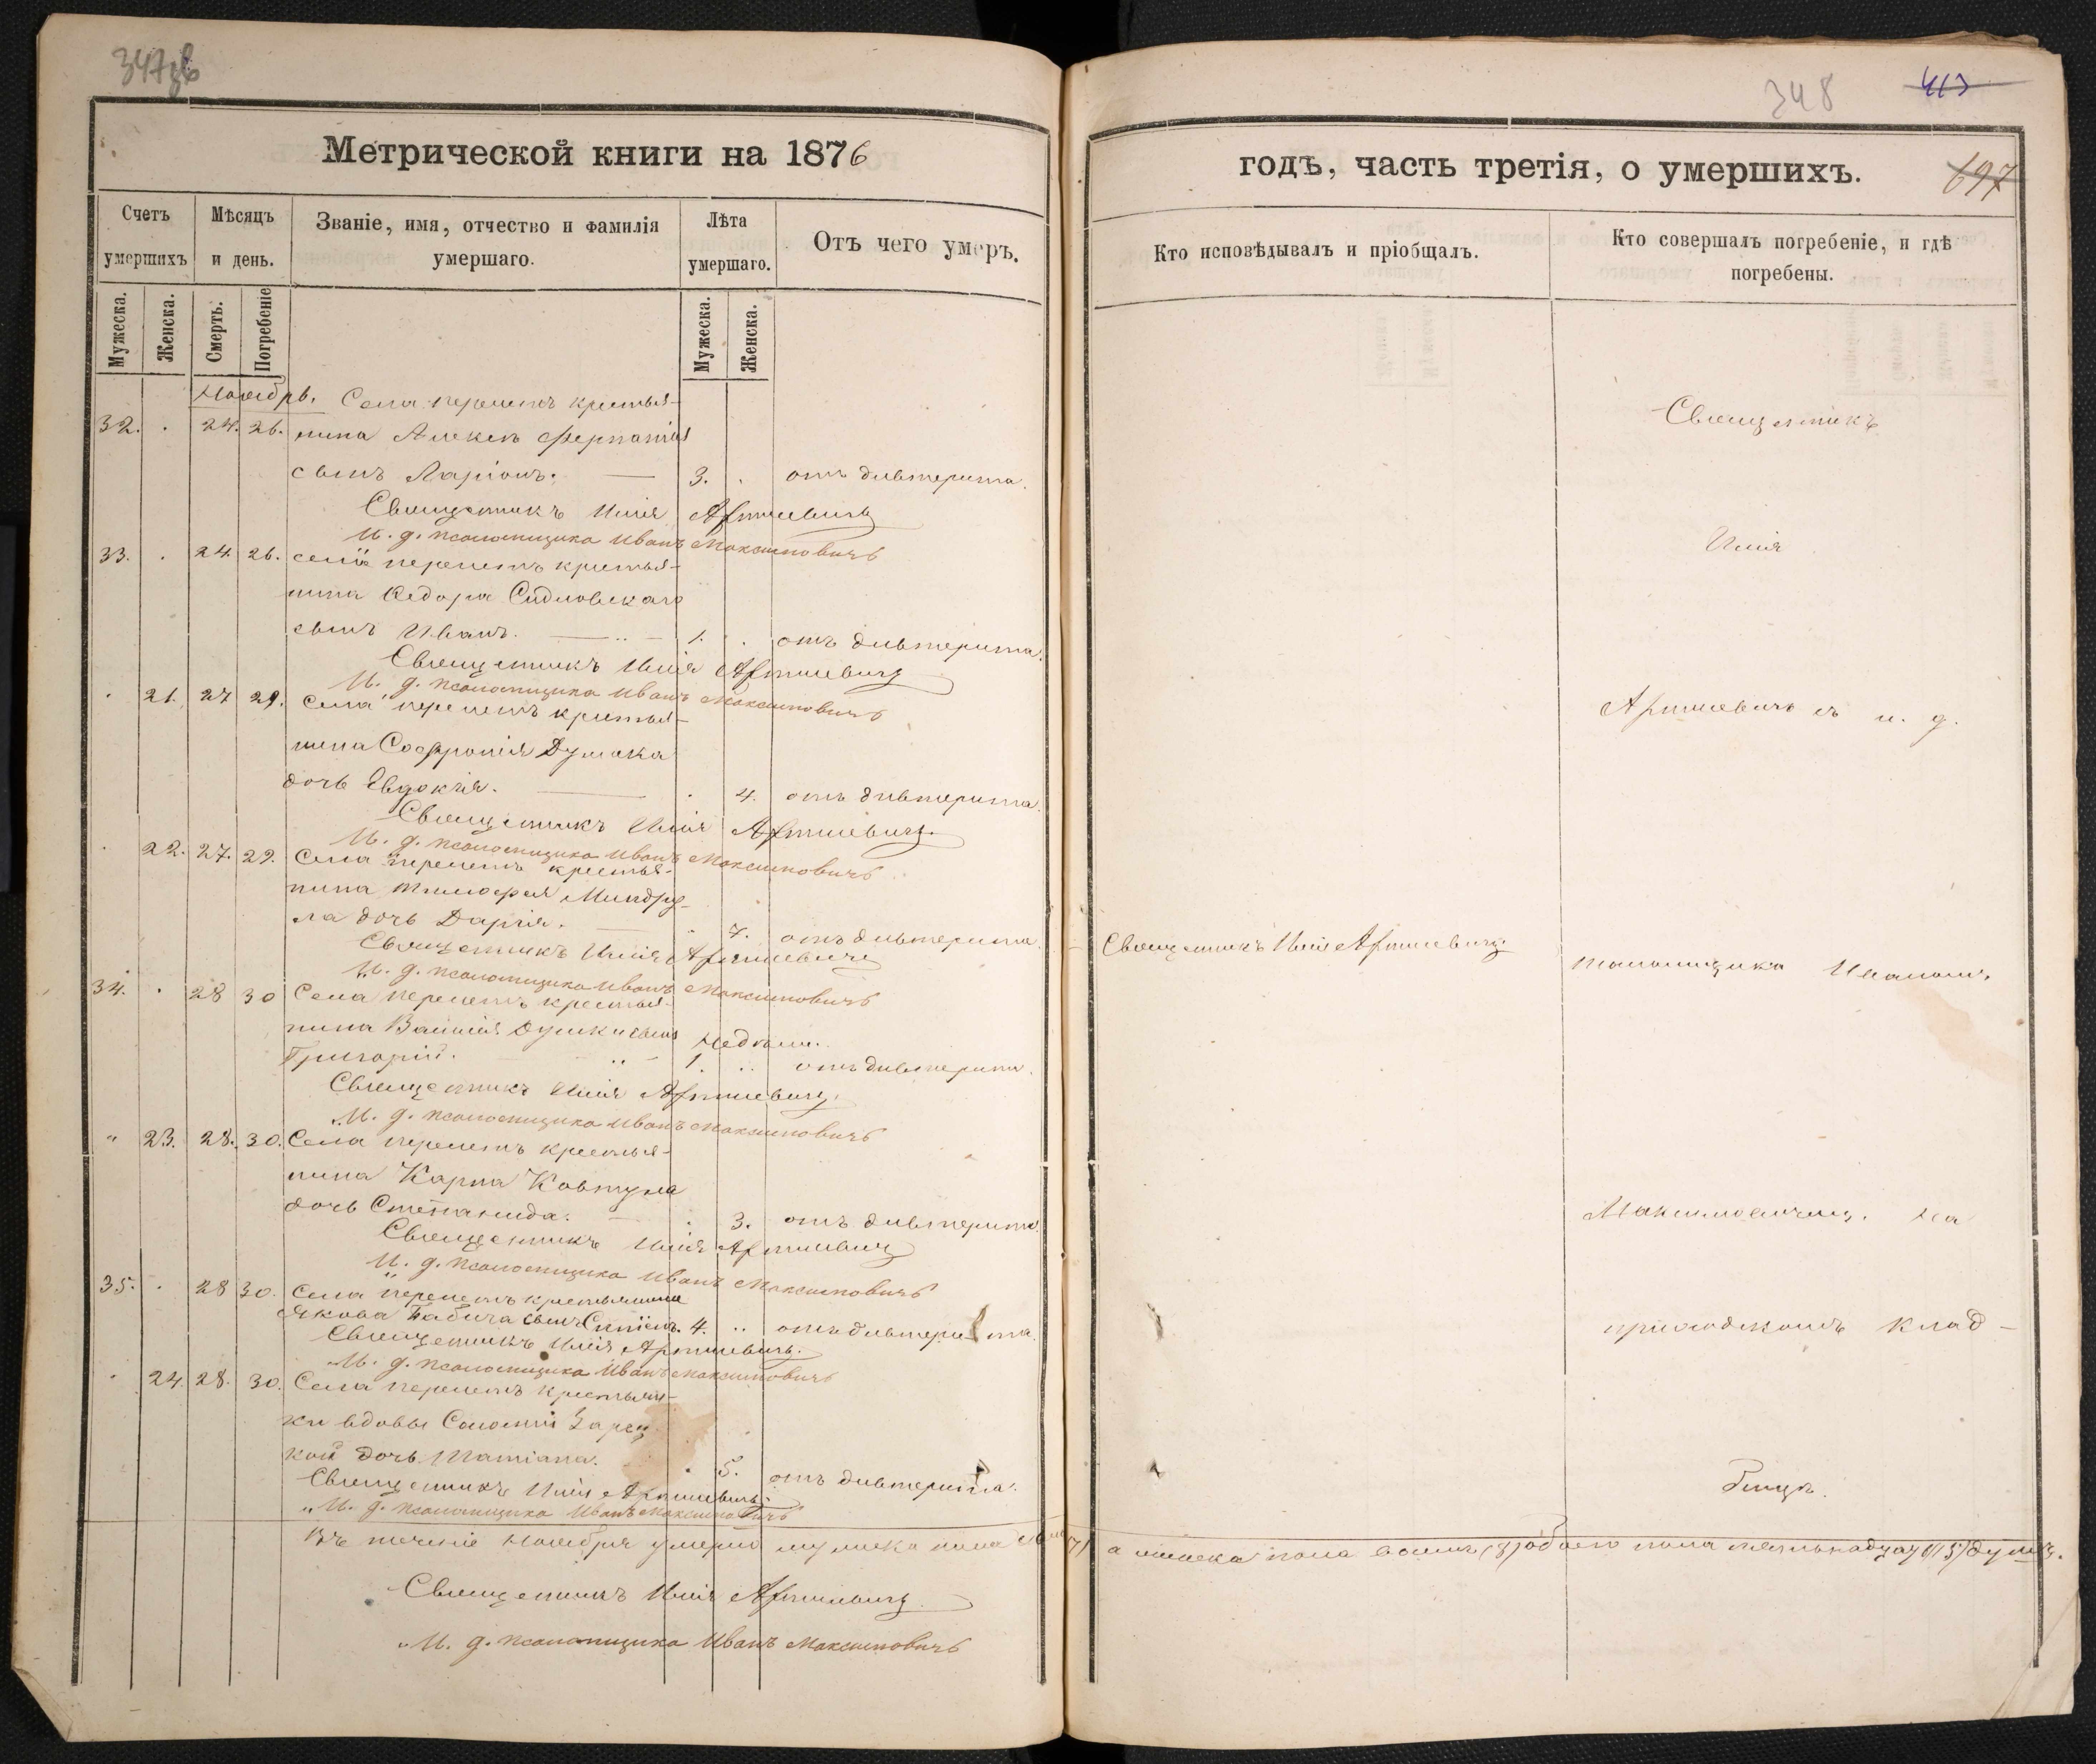 347зв
Метрической книги на 1876
Счетъ умершихъ
Мѣсяцъ и день.
Званіе, имя, отчество и фамилія умершаго.
Лѣта умершаго.
Отъ чего умеръ.
Мужеска.
Женска.
Смерть.
Погребеніе
Мужеска.
Женска.
Ноябрь.
Села Перелетъ крестья-
32. 24. 26. нина Алексѣя
сынъ Ларіонъ. 3. отъ дивтерита.
Священникъ Илія Артишевичъ
И. д. псаломщика Иванъ Максимовичъ
33. 24 26. Села Перелетъ крестья-
нина Ѳедора Сидловскаго
сынъ Иванъ. 1. отъ дивтерита.
Священникъ Илія Артишевичъ
И. д. псаломщика Иванъ Максимовичъ
21. 27 29. Села Перелетъ крестья-
нина Софронія Думака
дочь Евдокія. 4. отъ дивтерита.
Священникъ Илія Артишевичъ
И. д. псаломщика Иванъ Максимовичъ
22. 27. 29. Села Перелетъ крестья-
нина Тимофея Миндру-
ла дочь Дарія. 7. отъ дивтерита.
Священникъ Илія Артишевичъ
И. д. псаломщика Иванъ Максимовичъ
34. 28 30 Села Перелетъ крестья-
нина Василія сынъ недѣли.
Григорій. 1. отъ дивтерита.
Священникъ Илія Артишевичъ
И. д. псаломщика Иванъ Максимовичъ
23. 28. 30. Села Перелетъ крестья-
нина Карпа Ковтуна
дочь Степанида. 3. отъ дивтерита.
Священникъ Илія Артишевичъ
И. д. псаломщика Иванъ Максимовичъ
35. 28 30. Села Перелетъ крестьянина
Якова Бабича сынъ 4. отъ дивтерита.
Священникъ Илія Артишевичъ.
И. д. псаломщика Иванъ Максимовичъ
24. 28. 30. Села Перелетъ крестьян-
ки вдовы Соломіи Зарец
кой дочь Татіана. 5. отъ дивтерита.
Священникъ Илія Артишевичъ
И. д. псаломщика Иванъ Максимовичъ
Въ теченіе Ноября умерло мужеска пола
Священникъ Илія Артишевичъ
И. д. псаломщика Иванъ Максимовичъ
348 413
годъ, часть третія, о умершихъ.
697
Кто исповѣдывалъ и пріобщалъ.
Кто совершалъ погребеніе, и гдѣ погребены.
Священникъ
Илія
Артишевичъ съ и. д.
Священникъ Илія Артишевичъ
псаломщика Иваномъ
Максимовичемъ. на
приходскомъ клад-
бищѣ.
а женска пола восемь (8) обоего пола пятьнадцать (15) душъ.